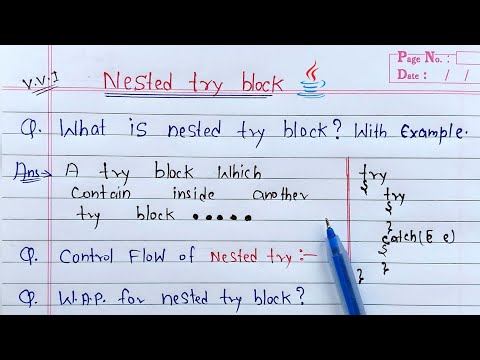 Page No. :
Date : / /
V.V.I
Nested try block
Q. What is nested try block? With Example.
Ans→ A try block which
Contain inside another
try block .....
try
{
try
{
}
catch(E e)
{
}
}
Q. Control Flow of Nested try :-
Q. W.A.P. for nested try block?